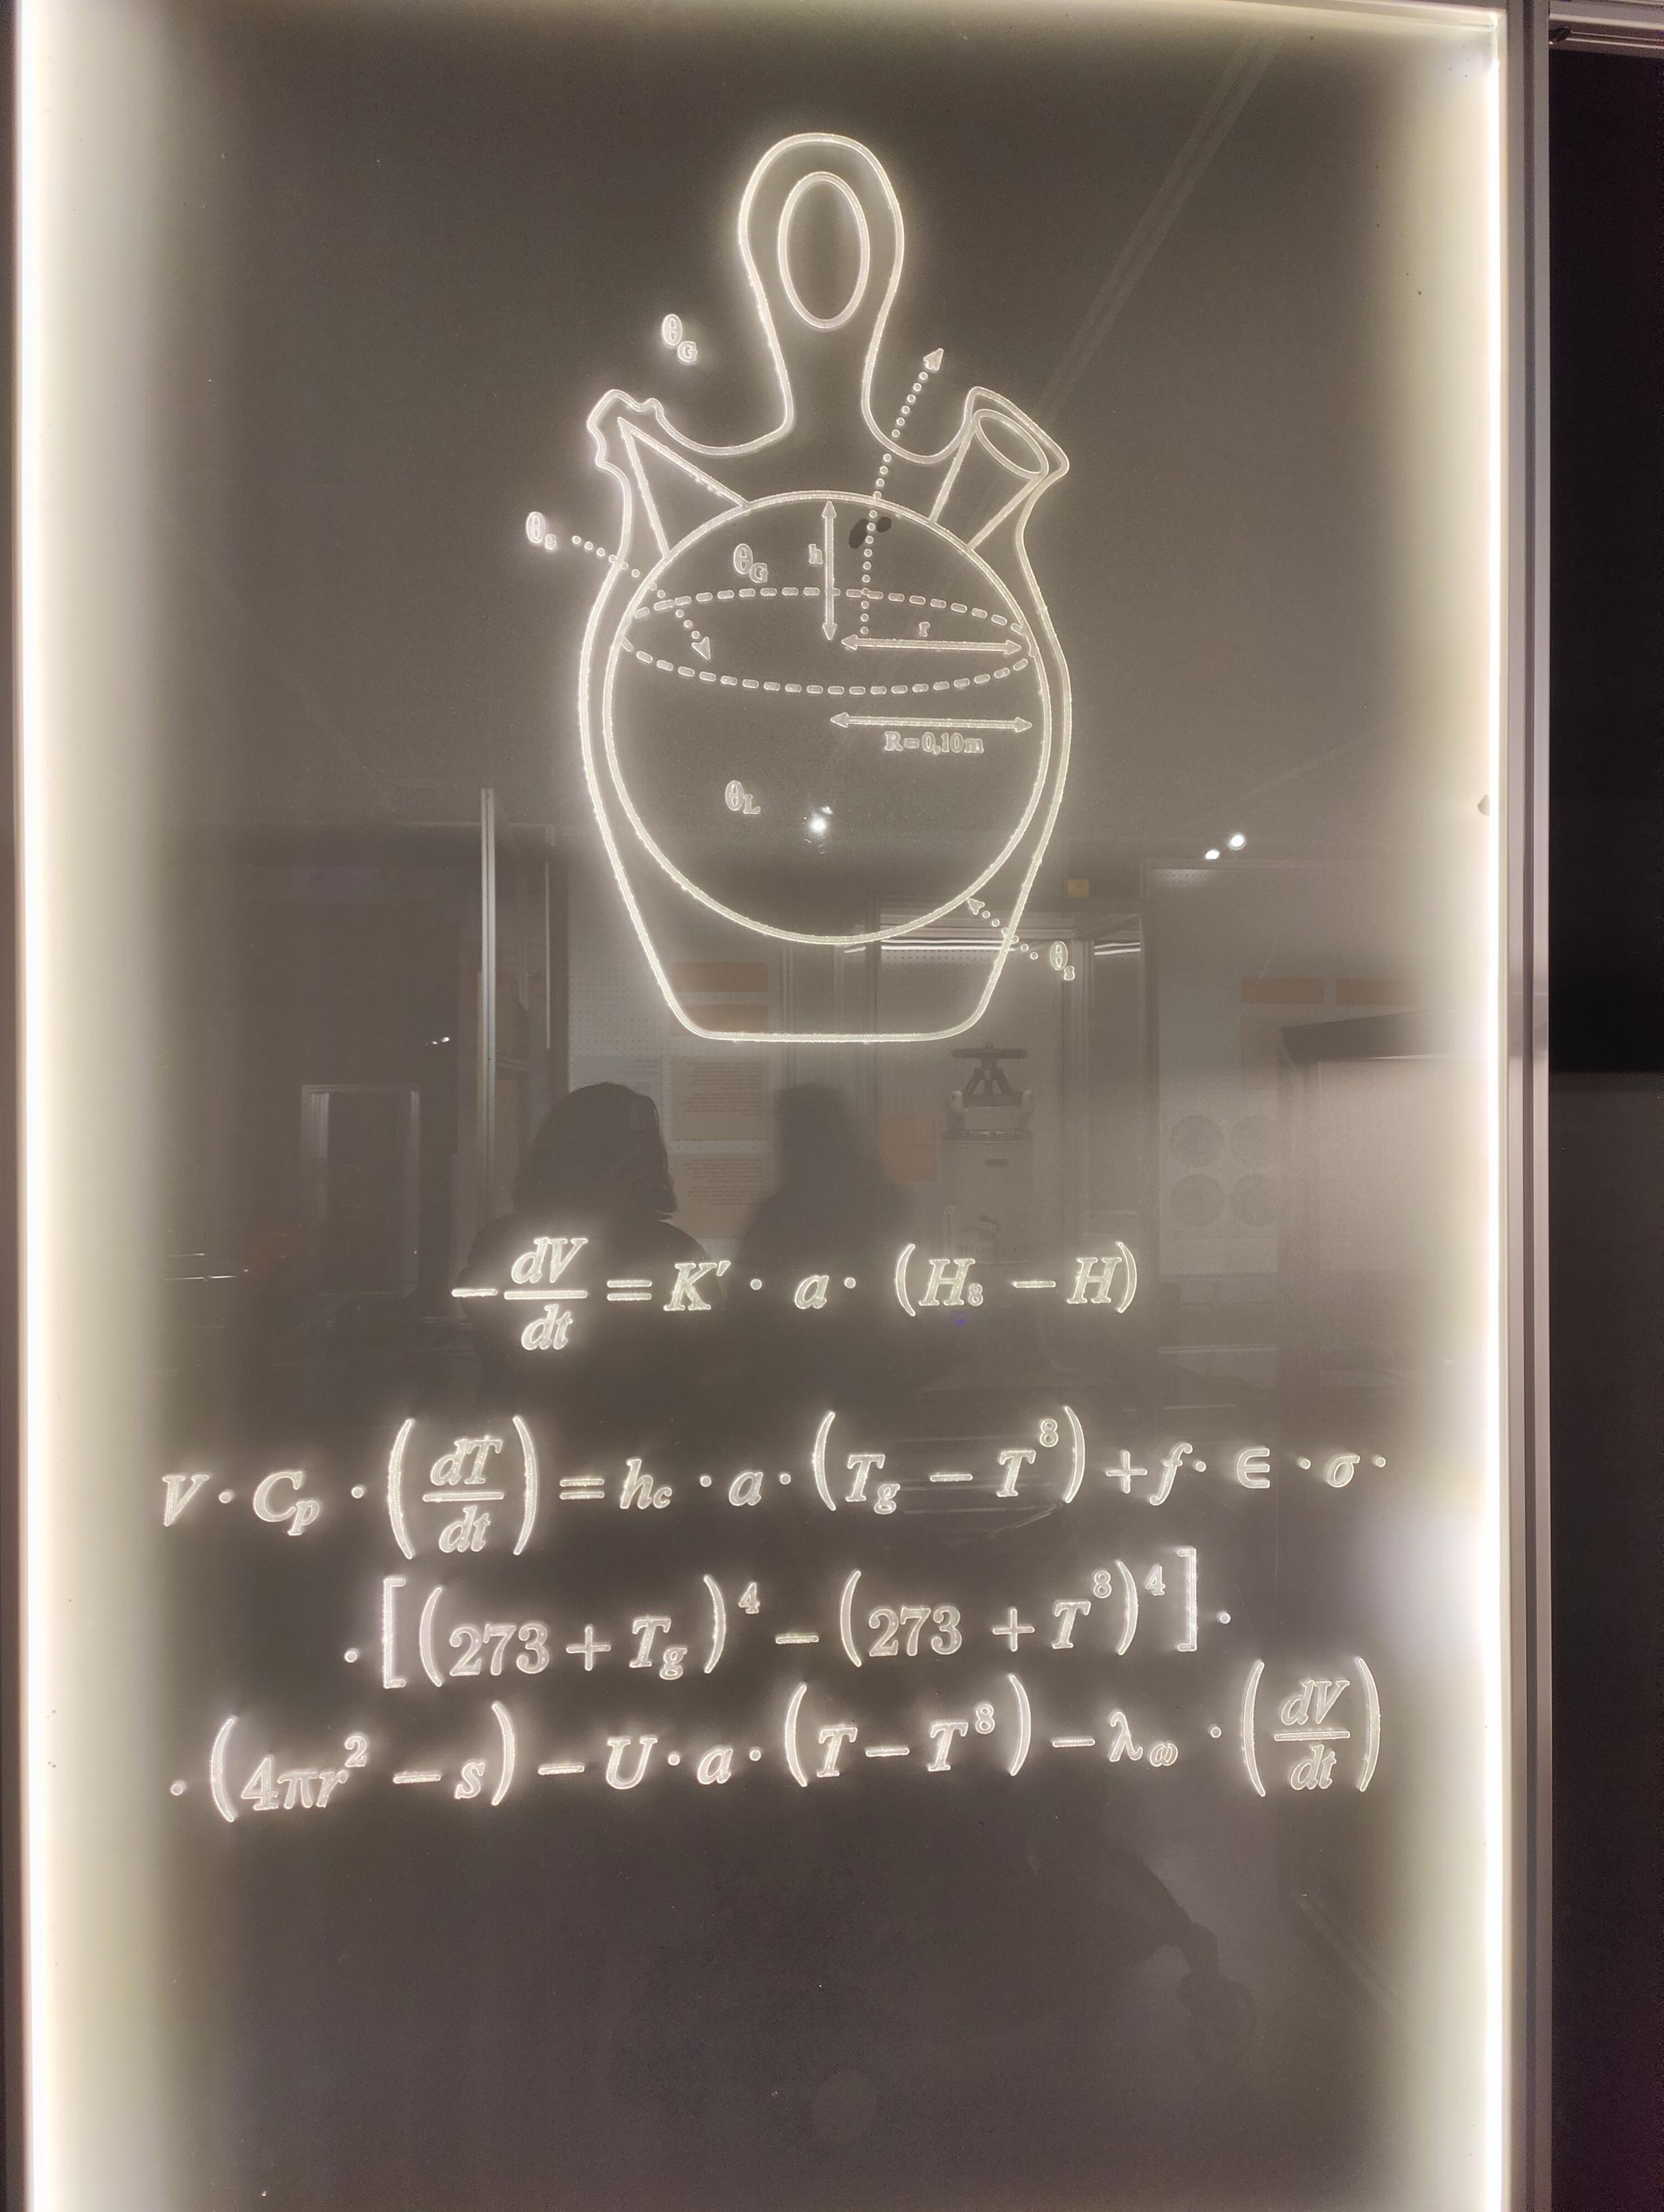 θG
θs
θG
h
r
R=0,10m
θL
θs
−dV/dt = K′ · a · (H₈ − H)
V · Cₚ · (dT/dt) = h꜀ · a · (T_g − T⁸) + f · ∈ · σ ·
· [(273 + T_g)⁴ − (273 + T⁸)⁴] ·
· (4πr² − s) − U · a · (T − T⁸) − λ_ω · (dV/dt)